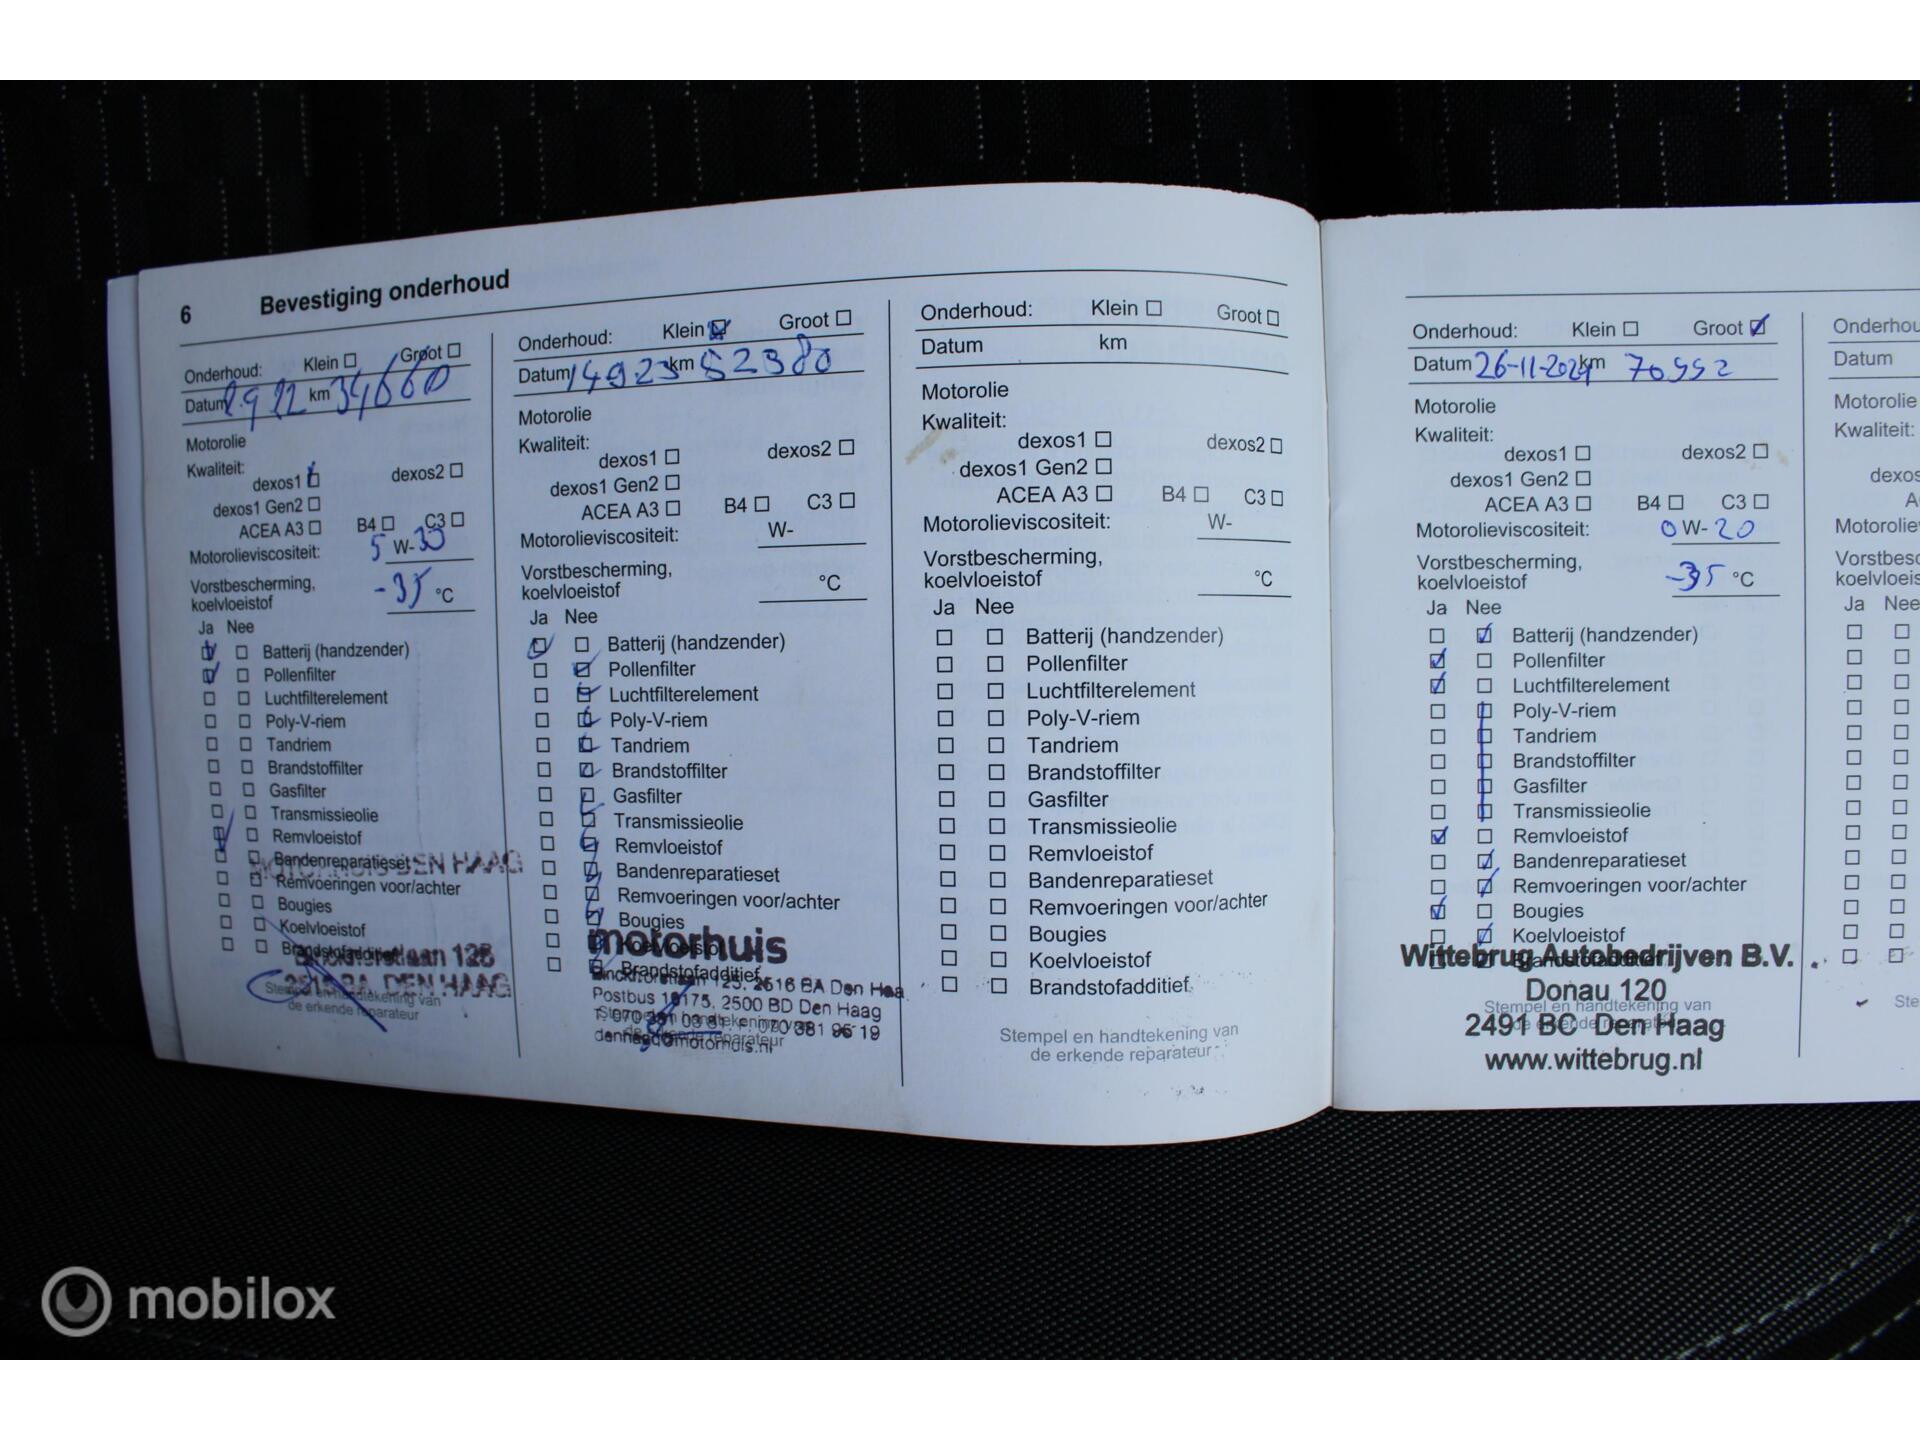 6 Bevestiging onderhoud
Onderhoud: Klein Groot
Datum km 34660
Motorolie
Kwaliteit:
dexos1 dexos2
dexos1 Gen2
ACEA A3 B4 C3
Motorolieviscositeit: 5 W-30
Vorstbescherming,
koelvloeistof -35 °C
Ja Nee
Batterij (handzender)
Pollenfilter
Luchtfilterelement
Poly-V-riem
Tandriem
Brandstoffilter
Gasfilter
Transmissieolie
Remvloeistof
Bandenreparatieset
MOTORHUIS DEN HAAG
Remvoeringen voor/achter
Bougies
Koelvloeistof
Brandstofadditief
125
2516 BA DEN HAAG
Stempel en handtekening van
de erkende reparateur
Onderhoud: Klein Groot
Datum 14923 km 52380
Motorolie
Kwaliteit:
dexos1 dexos2
dexos1 Gen2
ACEA A3 B4 C3
Motorolieviscositeit: W-
Vorstbescherming,
koelvloeistof °C
Ja Nee
Batterij (handzender)
Pollenfilter
Luchtfilterelement
Poly-V-riem
Tandriem
Brandstoffilter
Gasfilter
Transmissieolie
Remvloeistof
Bandenreparatieset
Remvoeringen voor/achter
Bougies
motorhuis
Koelvloeistof
Brandstofadditief
Binckhorstlaan 125, 2516 BA Den Haa
Postbus 16175, 2500 BD Den Haag
Stempel en handtekening van
de erkende reparateur
denhaag@motorhuis.nl
Onderhoud: Klein Groot
Datum km
Motorolie
Kwaliteit:
dexos1 dexos2
dexos1 Gen2
ACEA A3 B4 C3
Motorolieviscositeit: W-
Vorstbescherming,
koelvloeistof °C
Ja Nee
Batterij (handzender)
Pollenfilter
Luchtfilterelement
Poly-V-riem
Tandriem
Brandstoffilter
Gasfilter
Transmissieolie
Remvloeistof
Bandenreparatieset
Remvoeringen voor/achter
Bougies
Koelvloeistof
Brandstofadditief
Stempel en handtekening van
de erkende reparateur
Onderhoud: Klein Groot
Datum 26-11-2024 km 70552
Motorolie
Kwaliteit:
dexos1 dexos2
dexos1 Gen2
ACEA A3 B4 C3
Motorolieviscositeit: 0 W- 20
Vorstbescherming,
koelvloeistof -35 °C
Ja Nee
Batterij (handzender)
Pollenfilter
Luchtfilterelement
Poly-V-riem
Tandriem
Brandstoffilter
Gasfilter
Transmissieolie
Remvloeistof
Bandenreparatieset
Remvoeringen voor/achter
Bougies
Koelvloeistof
Brandstofadditief
Wittebrug Autobedrijven B.V.
Donau 120
Stempel en handtekening van
de erkende reparateur
2491 BC Den Haag
www.wittebrug.nl
Onderhou
Datum
Motorolie
Kwaliteit:
dexos
A
Motorolie
Vorstbesc
koelvloeis
Ja Nee
Ste
mobilox